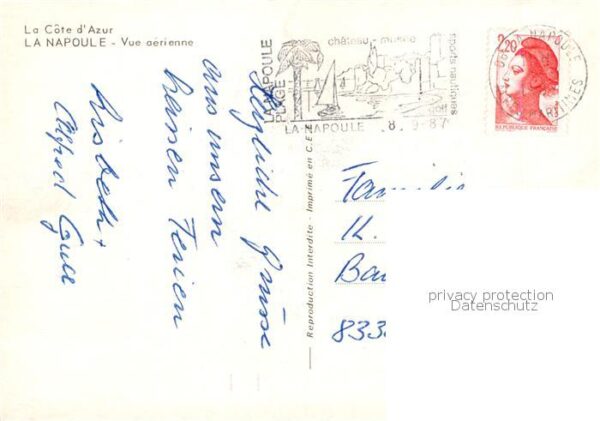 La Côte d'Azur
LA NAPOULE - Vue aérienne
LA NAPOULE
PLAGE
château - musée
sports nautiques
LA-NAPOULE 8.9-87
2,20
REPUBLIQUE FRANÇAISE
LA NAPOULE
Herzliche Grüsse
aus unsern
heissen Ferien
Lisbeth +
Alfred
Reproduction Interdite - Imprimé en C.E.
Familie
K.
Bau
833
privacy protection
Datenschutz